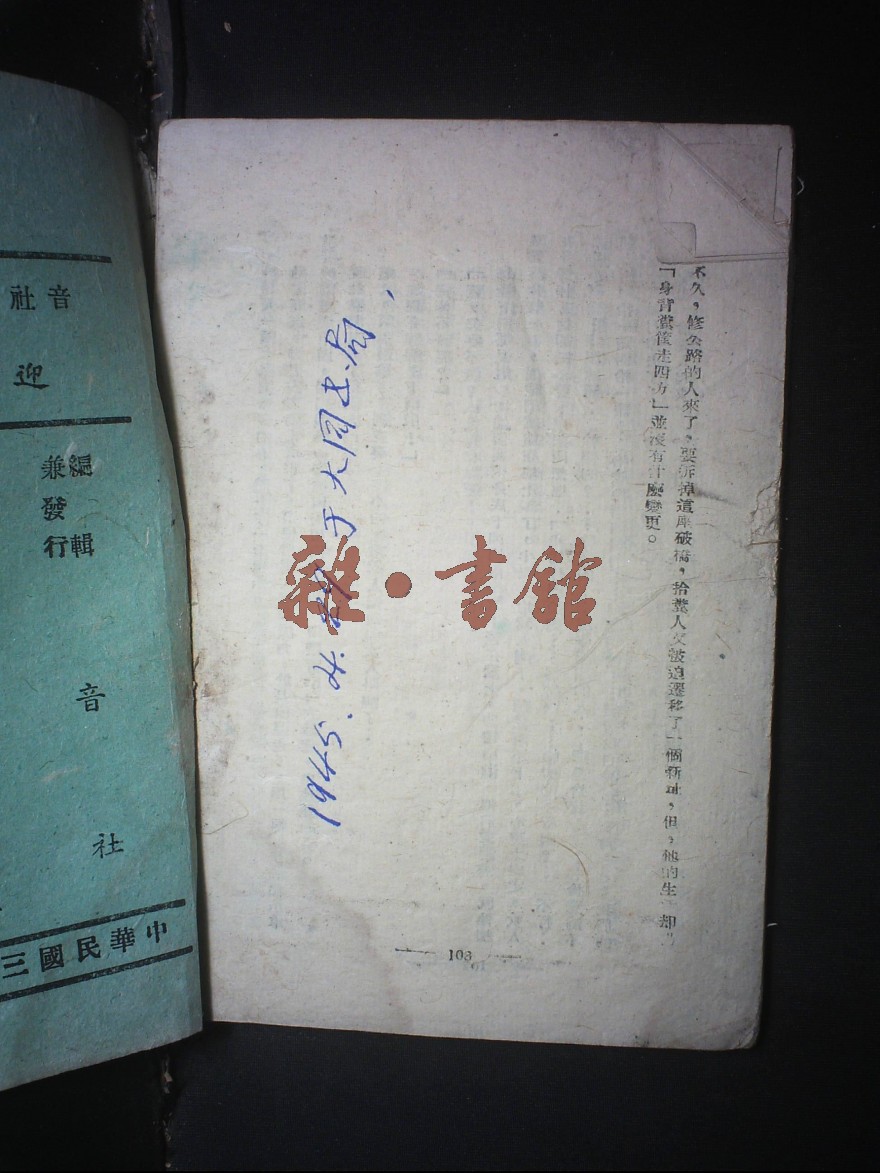 不久，修公路的人來了，要拆掉這座破橋，拾糞人又被迫遷移了一個新址，但，他的生 却
「身背糞筐走四方」並沒有什麼變更。
103
1945. 4. 于大同書局.
雜·書館
社音
迎
編輯
兼發行
音
社
中華民國三